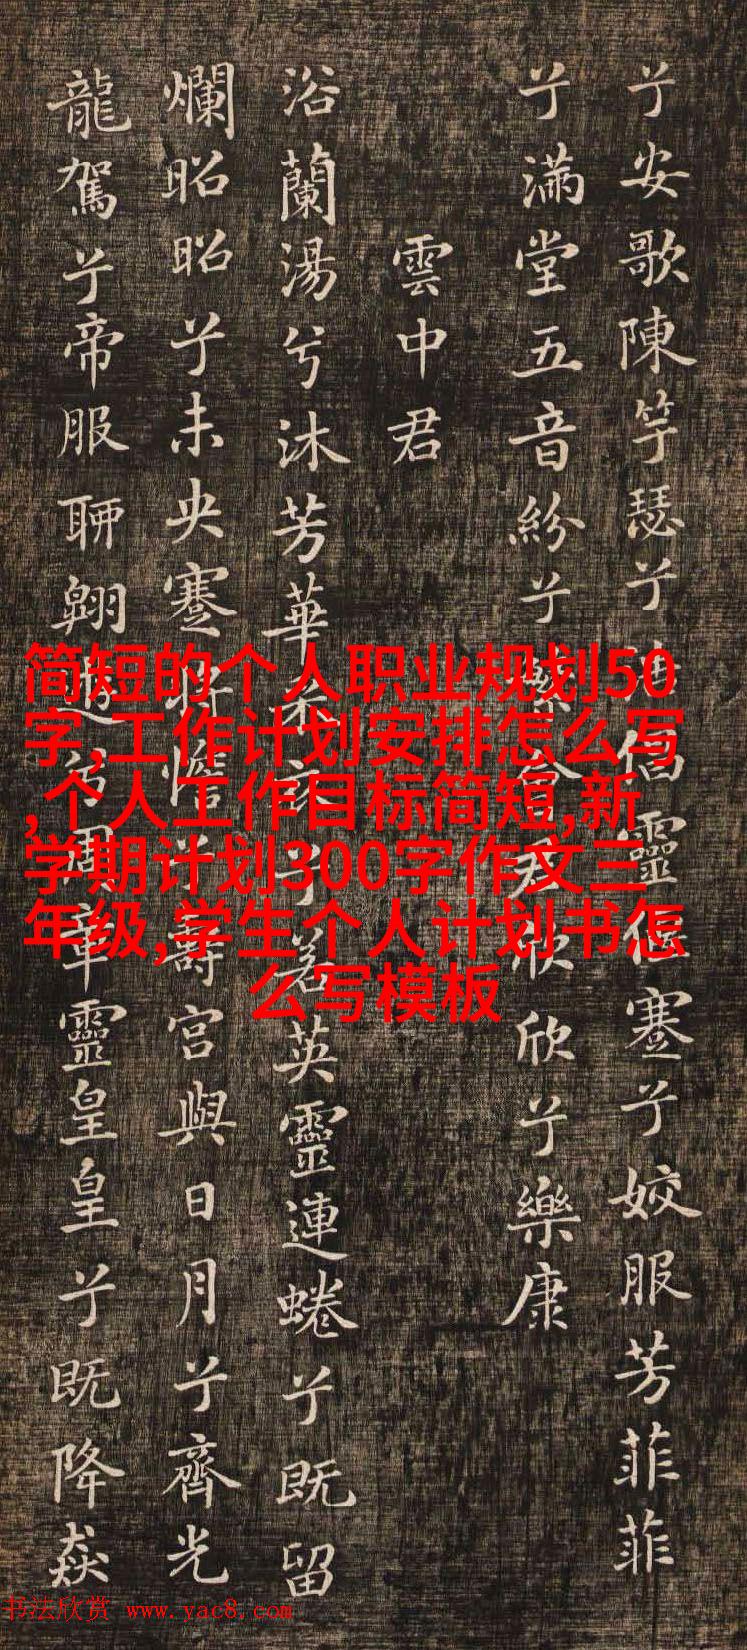 兮安歌陳竽瑟兮浩倡靈偃蹇兮姣服芳菲菲
兮滿堂五音紛兮繁會君欣欣兮樂康
雲中君
浴蘭湯兮沐芳華采衣兮若英靈連蜷兮既留
爛昭昭兮未央蹇將憺兮壽宮與日月兮齊光
龍駕兮帝服聊翱遊兮周章靈皇皇兮既降猋
简短的个人职业规划50
字,工作计划安排怎么写
,个人工作目标简短,新
学期计划300字作文三
年级,学生个人计划书怎
么写模板
书法欣赏 www.yac8.com